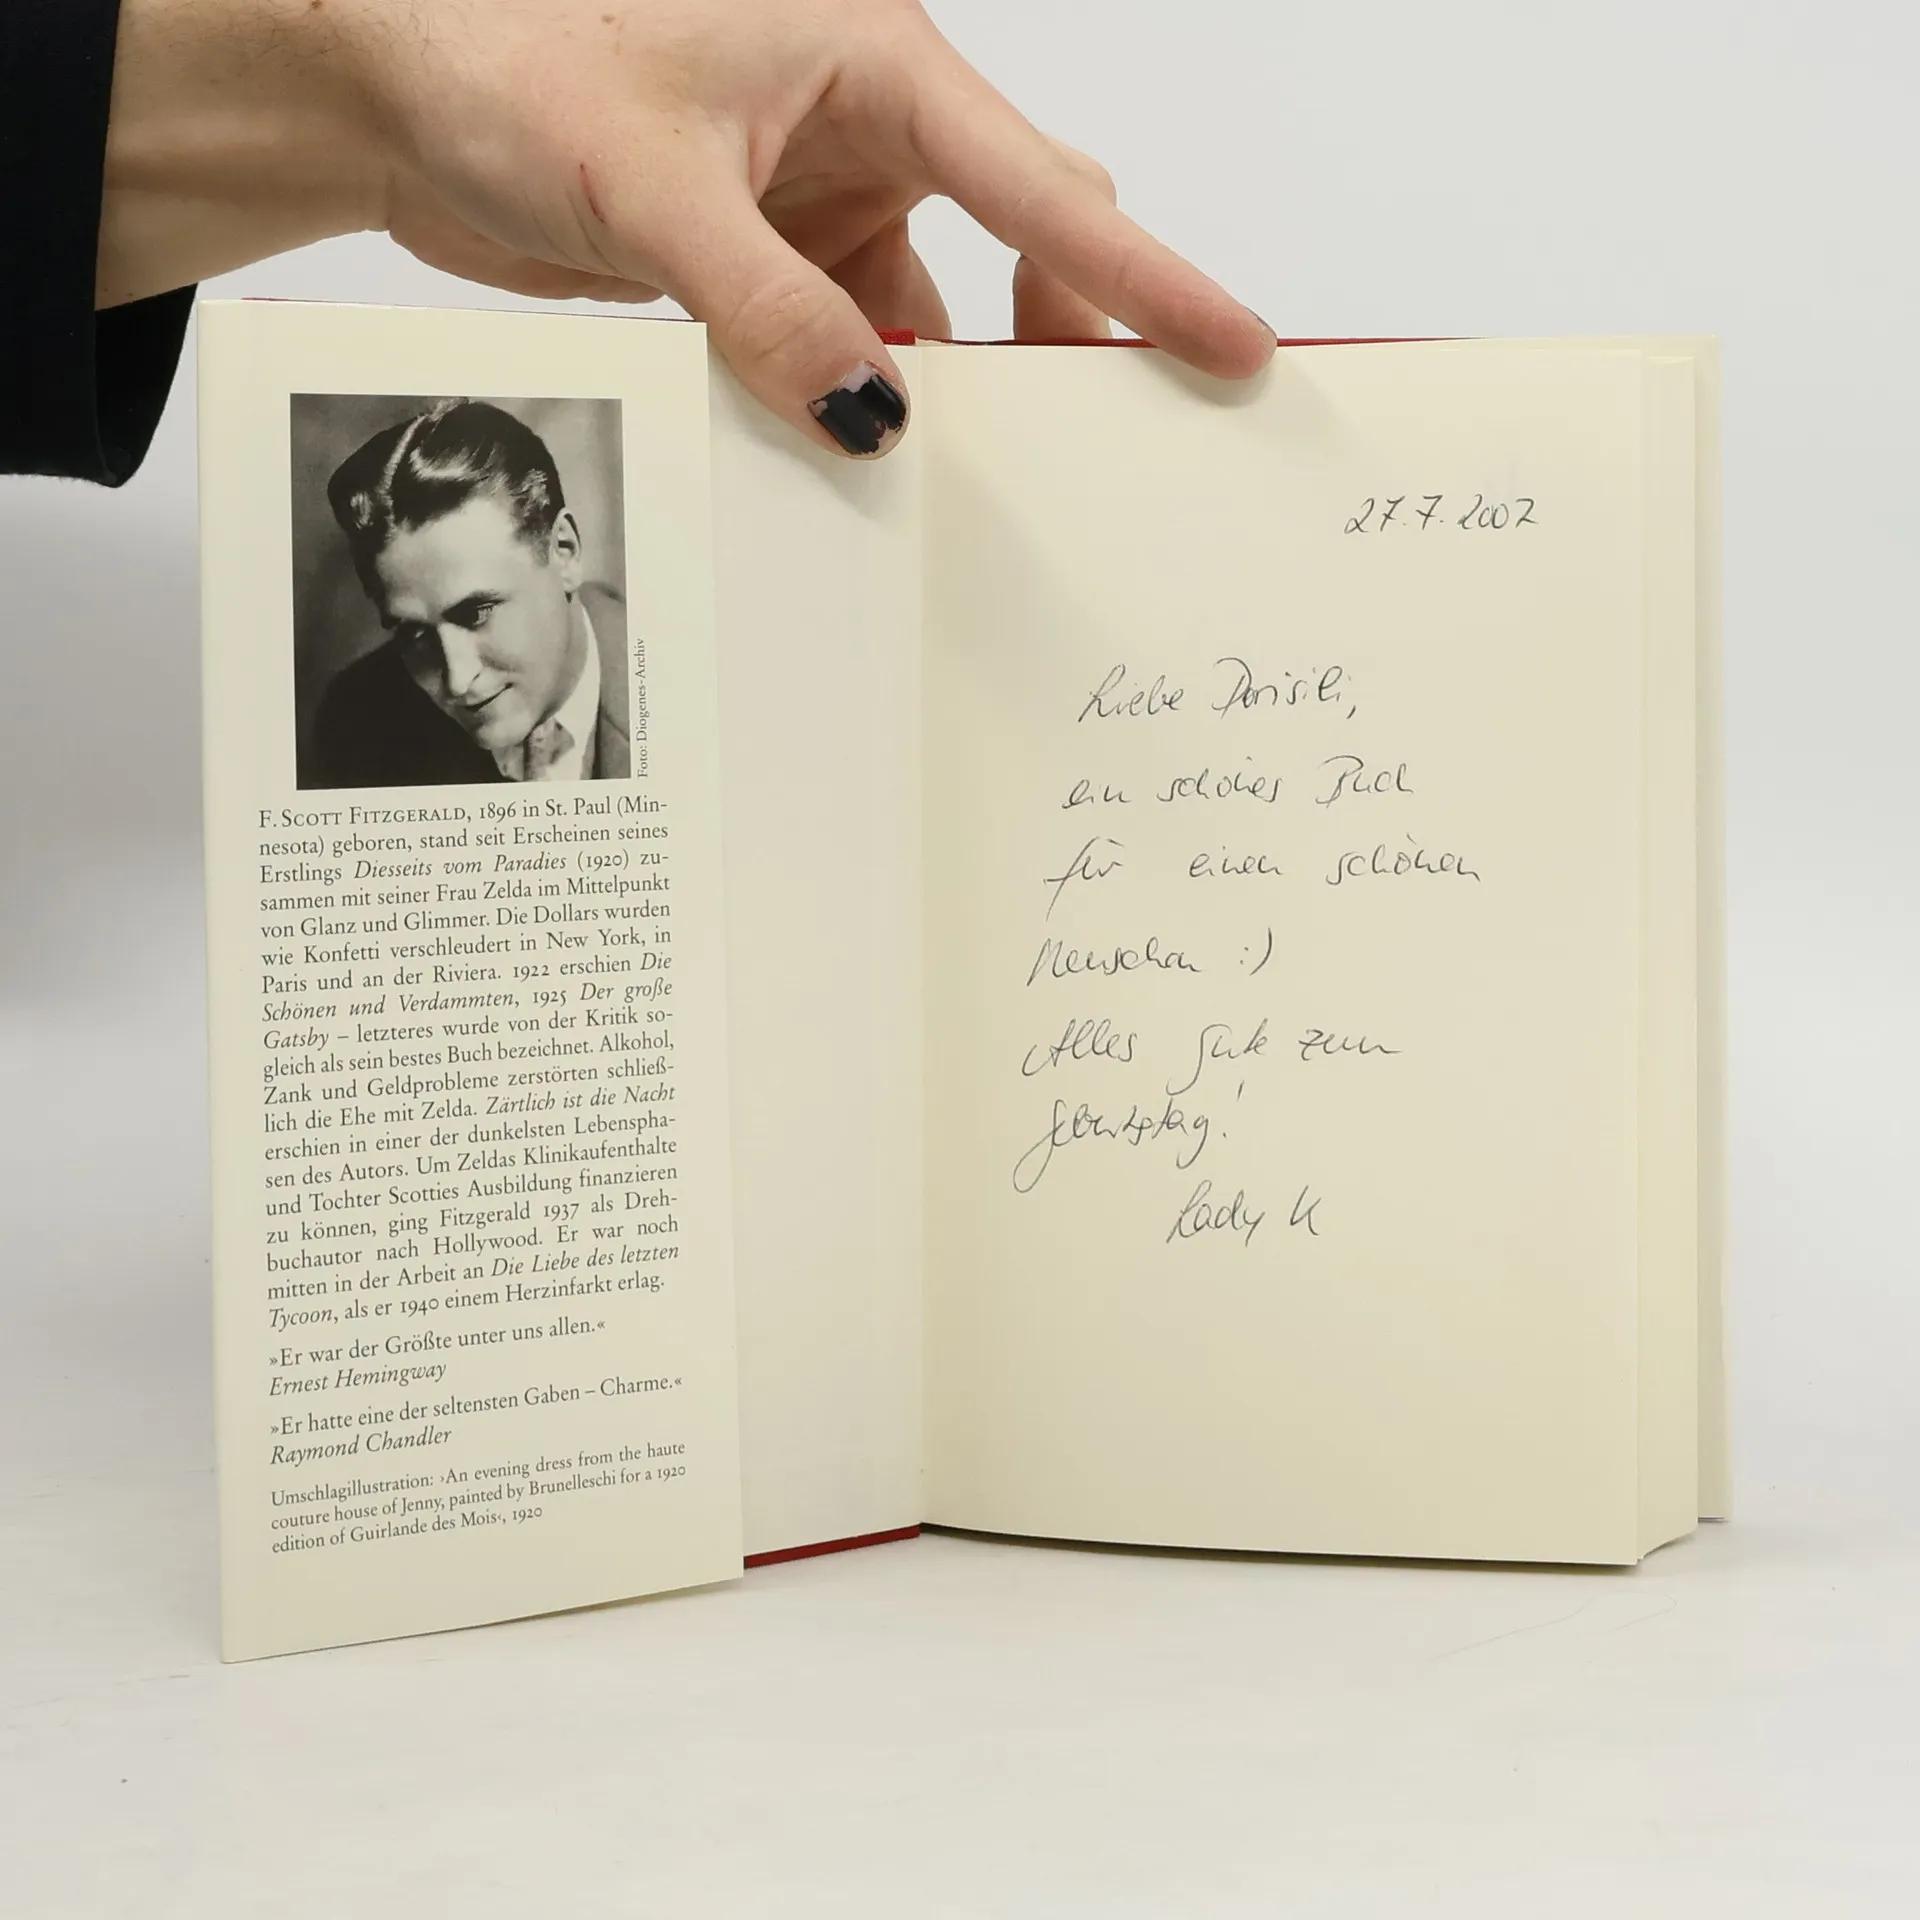 Foto: Diogenes-Archiv
F. SCOTT FITZGERALD, 1896 in St. Paul (Min-
nesota) geboren, stand seit Erscheinen seines
Erstlings Diesseits vom Paradies (1920) zu-
sammen mit seiner Frau Zelda im Mittelpunkt
von Glanz und Glimmer. Die Dollars wurden
wie Konfetti verschleudert in New York, in
Paris und an der Riviera. 1922 erschien Die
Schönen und Verdammten, 1925 Der große
Gatsby – letzteres wurde von der Kritik so-
gleich als sein bestes Buch bezeichnet. Alkohol,
Zank und Geldprobleme zerstörten schließ-
lich die Ehe mit Zelda. Zärtlich ist die Nacht
erschien in einer der dunkelsten Lebenspha-
sen des Autors. Um Zeldas Klinikaufenthalte
und Tochter Scotties Ausbildung finanzieren
zu können, ging Fitzgerald 1937 als Dreh-
buchautor nach Hollywood. Er war noch
mitten in der Arbeit an Die Liebe des letzten
Tycoon, als er 1940 einem Herzinfarkt erlag.
»Er war der Größte unter uns allen.«
Ernest Hemingway
»Er hatte eine der seltensten Gaben – Charme.«
Raymond Chandler
Umschlagillustration: ›An evening dress from the haute
couture house of Jenny, painted by Brunelleschi for a 1920
edition of Guirlande des Mois‹, 1920
27.7.2007
Liebe Dorisili,
ein schönes Buch
für einen schönen
Menschen :)
Alles Gute zum
Geburtstag!
Lady K